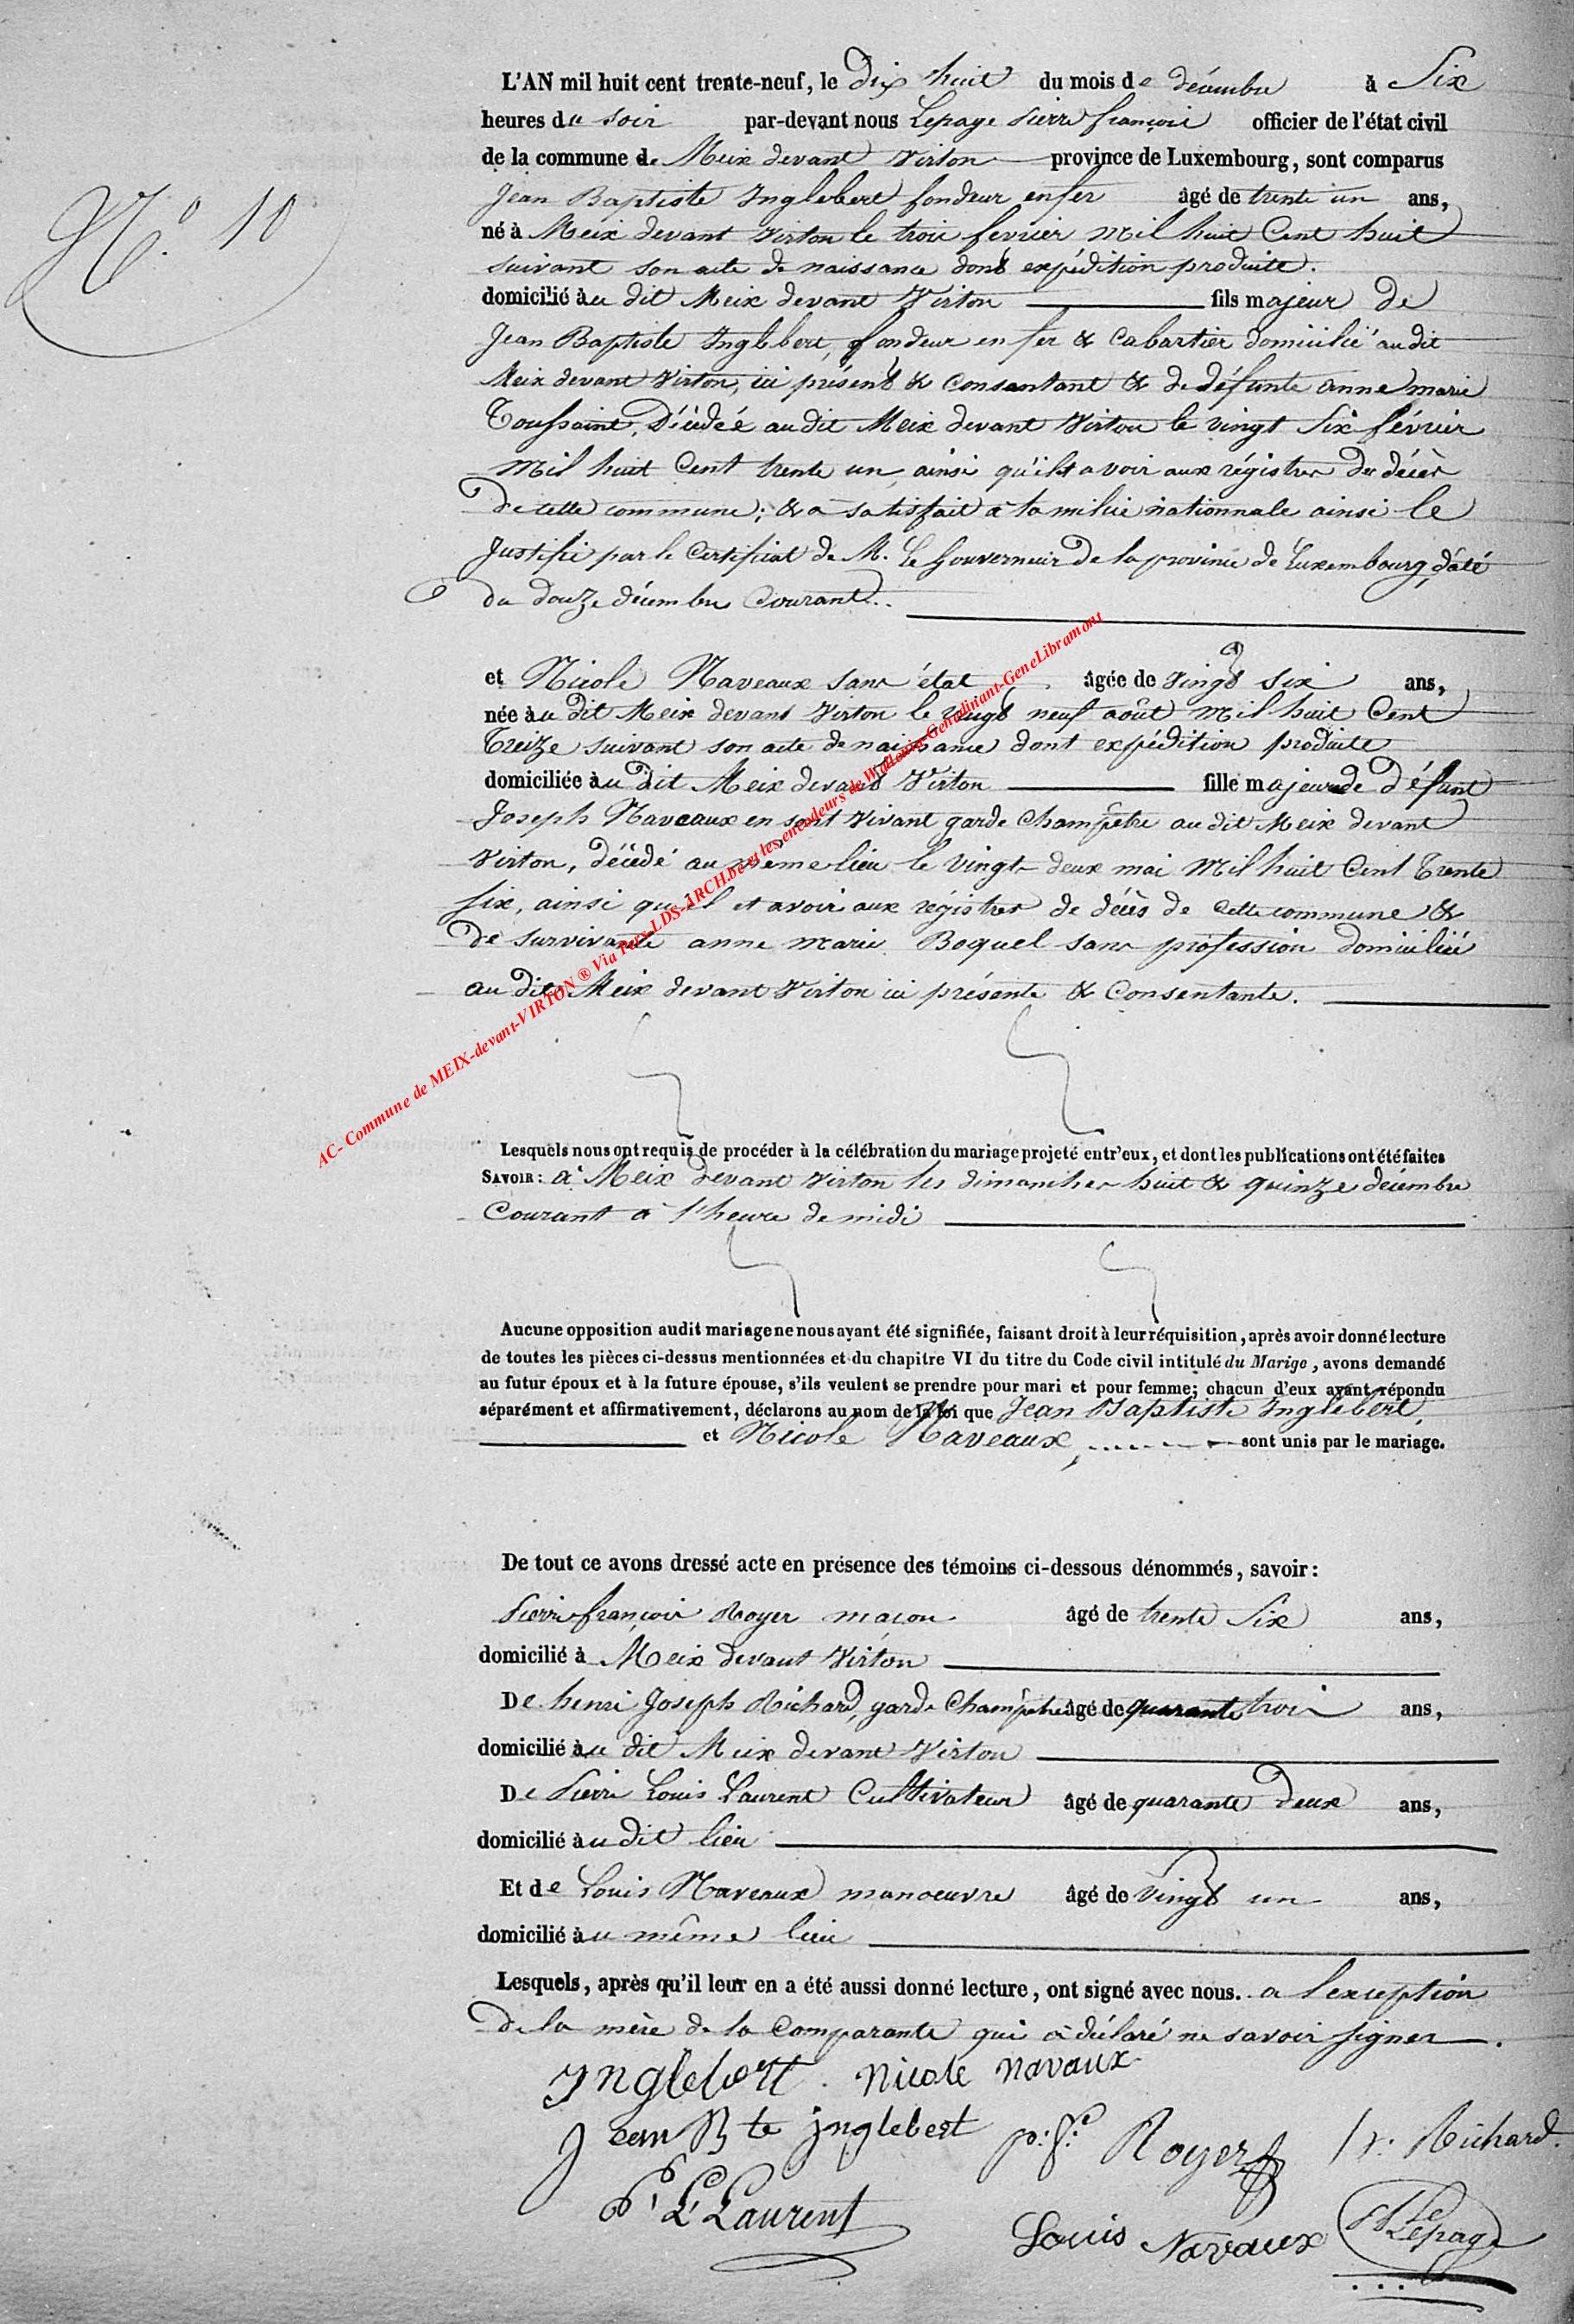 L'AN mil huit cent trente-neuf, le Dix huit du mois de décembre à Six
heures du soir par-devant nous Lepage Pierre françois officier de l'état civil
de la commune de Meix devant Virton province de Luxembourg, sont comparus
N.° 10
Jean Baptiste Inglebert fondeur en fer âgé de trente un ans,
né à Meix devant Virton le trois fevrier Mil huit Cent huit
suivant son acte de naissance dont expédition produite.
domicilié àu dit Meix devant Virton fils majeur de
Jean Baptiste Inglebert, fondeur en fer & Cabartier domicilié au dit
Meix devant Virton, ici présent & Consantant & de défunte anne marie
Toussaint, Décédéé au dit Meix devant Virton le vingt Six février
Mil huit Cent trente un, ainsi qu'il et a voir aux régistres des décès
de cette commune; & a satisfait a la milice nationnale ainsi le
Justifie par le Certificat de M. Le Gouverneur De la province de Luxembourg, daté
du douze décembre Courant.
et Nicole Naveaux sans état âgée de vingt six ans,
née àu dit Meix devant Virton le vingt neuf août Mil huit Cent
Treize suivant son acte de naissance dont expédition produite
domiciliée àu dit Meix devant Virton fille majeure de défunt
Joseph Naveaux en sont Vivant garde Champêtre au dit Meix devant
Virton, décédé au même lieu le Vingt deux mai Mil huit Cent Trente
Six, ainsi qu'il et avoir aux régistres de décès de cette commune &
de survivante anne marie Boquel sans profession domiciliéé
au dit Meix devant Virton ici présente & Consentante.
AC- Commune de MEIX-devant-VIRTON ® Via Pars-LDS-ARCH.be et les encodeurs de Wallonia-Genedinant-GeneLibramont
Lesquels nous ont requis de procéder à la célébration du mariage projeté entr'eux, et dont les publications ont été faites
SAVOIR: a Meix devant Virton les dimanches huit & quinze décembre
Courant a l'heure de midi
Aucune opposition audit mariage ne nous ayant été signifiée, faisant droit à leur réquisition, après avoir donné lecture
de toutes les pièces ci-dessus mentionnées et du chapitre VI du titre du Code civil intitulé du Marige, avons demandé
au futur époux et à la future épouse, s'ils veulent se prendre pour mari et pour femme; chacun d'eux ayant répondu
séparément et affirmativement, déclarons au nom de la loi que Jean Baptiste Inglebert,
et Nicole Naveaux, sont unis par le mariage.
De tout ce avons dressé acte en présence des témoins ci-dessous dénommés, savoir:
Pierre françois Royer maçon âgé de trente Six ans,
domicilié à Meix devant Virton
De henri Joseph Richard, garde Champêtre âgé de quarante trois ans,
domicilié àu dit Meix devant Virton
De Pierre Louis Laurent Cultivateur âgé de quarante deux ans,
domicilié àu dit lieu
Et de Louis Naveaux manoeuvre âgé de vingt un ans,
domicilié àu même lieu
Lesquels, après qu'il leur en a été aussi donné lecture, ont signé avec nous. a l'exception
de la mère de la Comparante qui a déclaré ne savoir signer.
Inglebert. Nicole Navaux
Jean B te inglebert p: f: Royer h: Richard.
P. L. Laurent
Louis Navaux Lepage